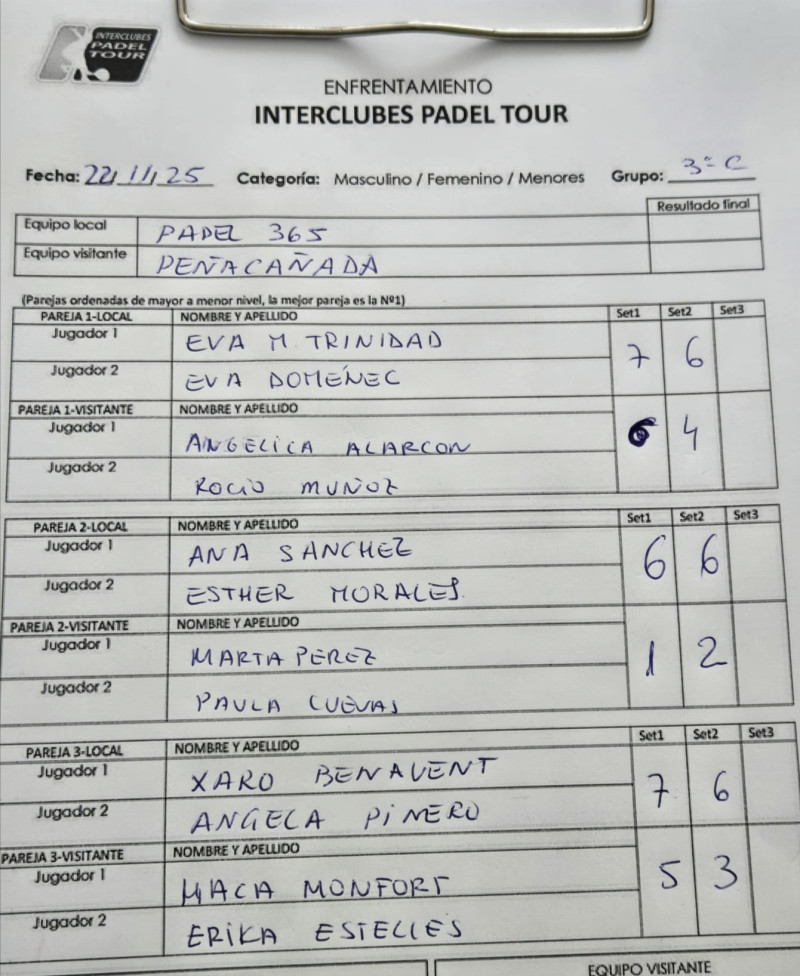 INTERCLUBES
PADEL
TOUR
ENFRENTAMIENTO
INTERCLUBES PADEL TOUR
Fecha: 22/11/25 Categoría: Masculino / Femenino / Menores Grupo: 3ª C
Resultado final
Equipo local PADEL 365
Equipo visitante PEÑACAÑADA
(Parejas ordenadas de mayor a menor nivel, la mejor pareja es la Nº1)
PAREJA 1-LOCAL NOMBRE Y APELLIDO Set1 Set2 Set3
Jugador 1 EVA M TRINIDAD 7 6
Jugador 2 EVA DOMÉNEC
PAREJA 1-VISITANTE NOMBRE Y APELLIDO
Jugador 1 ANGELICA ALARCON 6 4
Jugador 2 ROCIO MUÑOZ
PAREJA 2-LOCAL NOMBRE Y APELLIDO Set1 Set2 Set3
Jugador 1 ANA SANCHEZ 6 6
Jugador 2 ESTHER MORALES
PAREJA 2-VISITANTE NOMBRE Y APELLIDO
Jugador 1 MARTA PEREZ 1 2
Jugador 2 PAULA CUEVAS
PAREJA 3-LOCAL NOMBRE Y APELLIDO Set1 Set2 Set3
Jugador 1 XARO BENAVENT 7 6
Jugador 2 ANGELA PIÑERO
PAREJA 3-VISITANTE NOMBRE Y APELLIDO
Jugador 1 MACA MONFORT 5 3
Jugador 2 ERIKA ESTELLES
EQUIPO VISITANTE